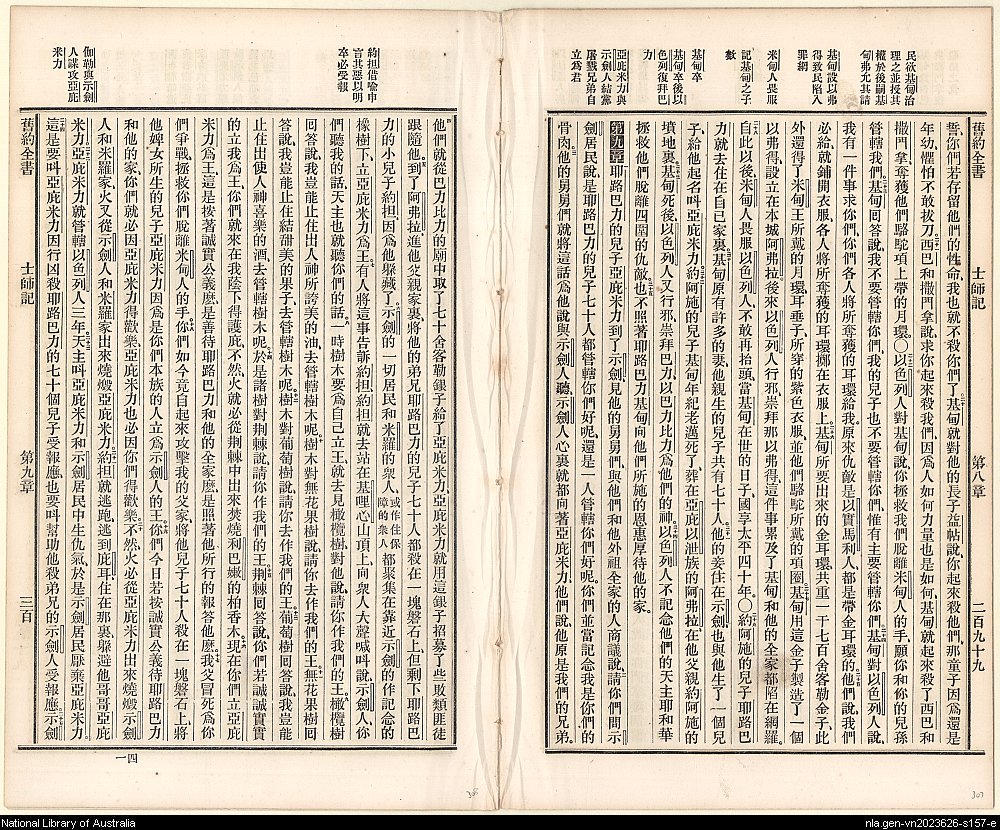 民欲基甸治
理之並授其
權於後嗣基
甸弗允其請
基甸設以弗
得致民陷入
罪網
米甸人畏服
記基甸之子
數
基甸卒
基甸卒後以
色列復拜巴
力
亞庇米力與
示劍人結黨
屠戮兄弟自
立為君
舊約全書
士師記
第八章
二百九十九
誓、你們若存留他們的性命、我也就不殺你們了基甸就對他的長子益帖說、你起來殺他們、那童子因為還是
年幼、懼怕不敢拔刀西巴和撒門拿說、求你起來殺我們、因為人如何力量也是如何基甸就起來殺了西巴和
撒門拿、奪獲他們駱駝項上帶的月環○以色列人對基甸說、你拯救我們脫離米甸人的手、願你和你的兒孫
管轄我們基甸回答說、我不要管轄你們、我的兒子也不要管轄你們、惟有主要管轄你們基甸對以色列人說、
我有一件事求你們、你們各人將所奪獲的耳環給我、原來仇敵是以實馬利人、都是帶金耳環的他們說、我們
必給、就鋪開衣服、各人將所奪獲的耳環擲在衣服上基甸所要出來的金耳環共重一千七百舍客勒金子、此
外還得了米甸王所戴的月環、耳垂子、所穿的紫色衣服、並他們駱駝所戴的項圈基甸用這金子製造了一個
以弗得、設立在本城阿弗拉、後來以色列人行邪崇拜那以弗得、這件事累及了基甸和他的全家、都陷在網羅、
自此以後、米甸人畏服以色列人、不敢再抬頭、當基甸在世的日子、國享太平四十年○約阿施的兒子耶路巴
力就去住在自己家裏基甸原有許多的妻、他親生的兒子共有七十人他的妾住在示劍、也與他生了一個兒
子、給他起名叫亞庇米力約阿施的兒子基甸年紀老邁死了、葬在亞庇以泄族的阿弗拉、在他父親約阿施的
墳地裏基甸死後、以色列人又行邪祟拜巴力、以巴力比力為他們的神以色列人不記念他們的天主耶和華
拯救他們脫離四圍的仇敵也不照著耶路巴力基甸向他們所施的恩惠厚待他的家。
第九章耶路巴力的兒子亞庇米力到了示劍、見他的舅舅們、與他們和他外祖全家的人商議說請你們問示
劍居民說、是耶路巴力的兒子七十人都管轄你們好呢、還是一人管轄你們好呢、你們並當記念我是你們的
骨肉他的舅舅們就將這話為他說與示劍人聽、示劍人心裏就都向著亞庇米力、他們說、他原是我們的兄弟。
約担借喻申
言其惡以明
卒必受報
伽勒與示劍
人謀攻亞庇
米力
他們就從巴力比力的廟中取了七十舍客勒銀子給了亞庇米力、亞庇米力就用這銀子招募了些敗類匪徒
跟隨他到了阿弗拉、進他父親家裏、將他的弟兄、耶路巴力的兒子七十人、都殺在一塊磐石上、但剩下耶路巴
力的小兒子約担、因為他躲藏了示劍的一切居民、和米羅的衆人、或作住保障的衆人都聚集在靠近示劍的作記念的
橡樹下、立亞庇米力為王有人將這事告訴約担、約担就去站在基哩心山頂上、向衆人大聲喊叫說、示劍人、你
們聽我的話、天主也就聽你們的話一時樹木要為自己立王、就去見橄欖樹對他說、請你作我們的王橄欖樹
回答說、我豈能止住出人神所誇美的油、去管轄樹木呢樹木對無花果樹說、請你去作我們的王無花果樹回
答說、我豈能止住結甜美的果子、去管轄樹木呢樹木對葡萄樹說、請你去作我們的王葡萄樹回答說、我豈能
止住出使人神喜樂的酒、去管轄樹木呢於是諸樹對荊棘說、請你作我們的王荊棘回答說、你們若誠誠實實
的立我為王、你們就來在我蔭下得護庇、不然、火就必從荊棘中出來、焚燒利巴嫩的柏香木現在你們立亞庇
米力為王、這是按著誠實公義麽、是善待耶路巴力和他的全家麽、是照著他所行的報答他麽我父冒死為你
們爭戰、拯救你們脫離米甸人的手你們如今竟自起來攻擊我的父家、將他兒子七十人殺在一塊磐石上、將
他婢女所生的兒子亞庇米力、因為是你們本族的人、立為示劍人的王你們今日若按誠實公義待耶路巴力
和他的家、你們就必因亞庇米力得歡樂、亞庇米力也必因你們得歡樂不然、火必從亞庇米力出來、燒燬示劍
人和米羅家、火又從示劍人和米羅家出來、燒燬亞庇米力約担就逃跑、逃到庇耳、住在那裏、躲避他哥哥亞庇
米力亞庇米力就管轄以色列人三年天主叫亞庇米力和示劍居民中生仇氣、於是示劍居民厭棄亞庇米力
這是要叫亞庇米力因行凶殺耶路巴力的七十個兒子受報應、也要叫幫助他殺弟兄的示劍人受報應示劍
舊約全書
士師記
第九章
三百
四一
National Library of Australia
nla.gen-vn2023626-s157-e